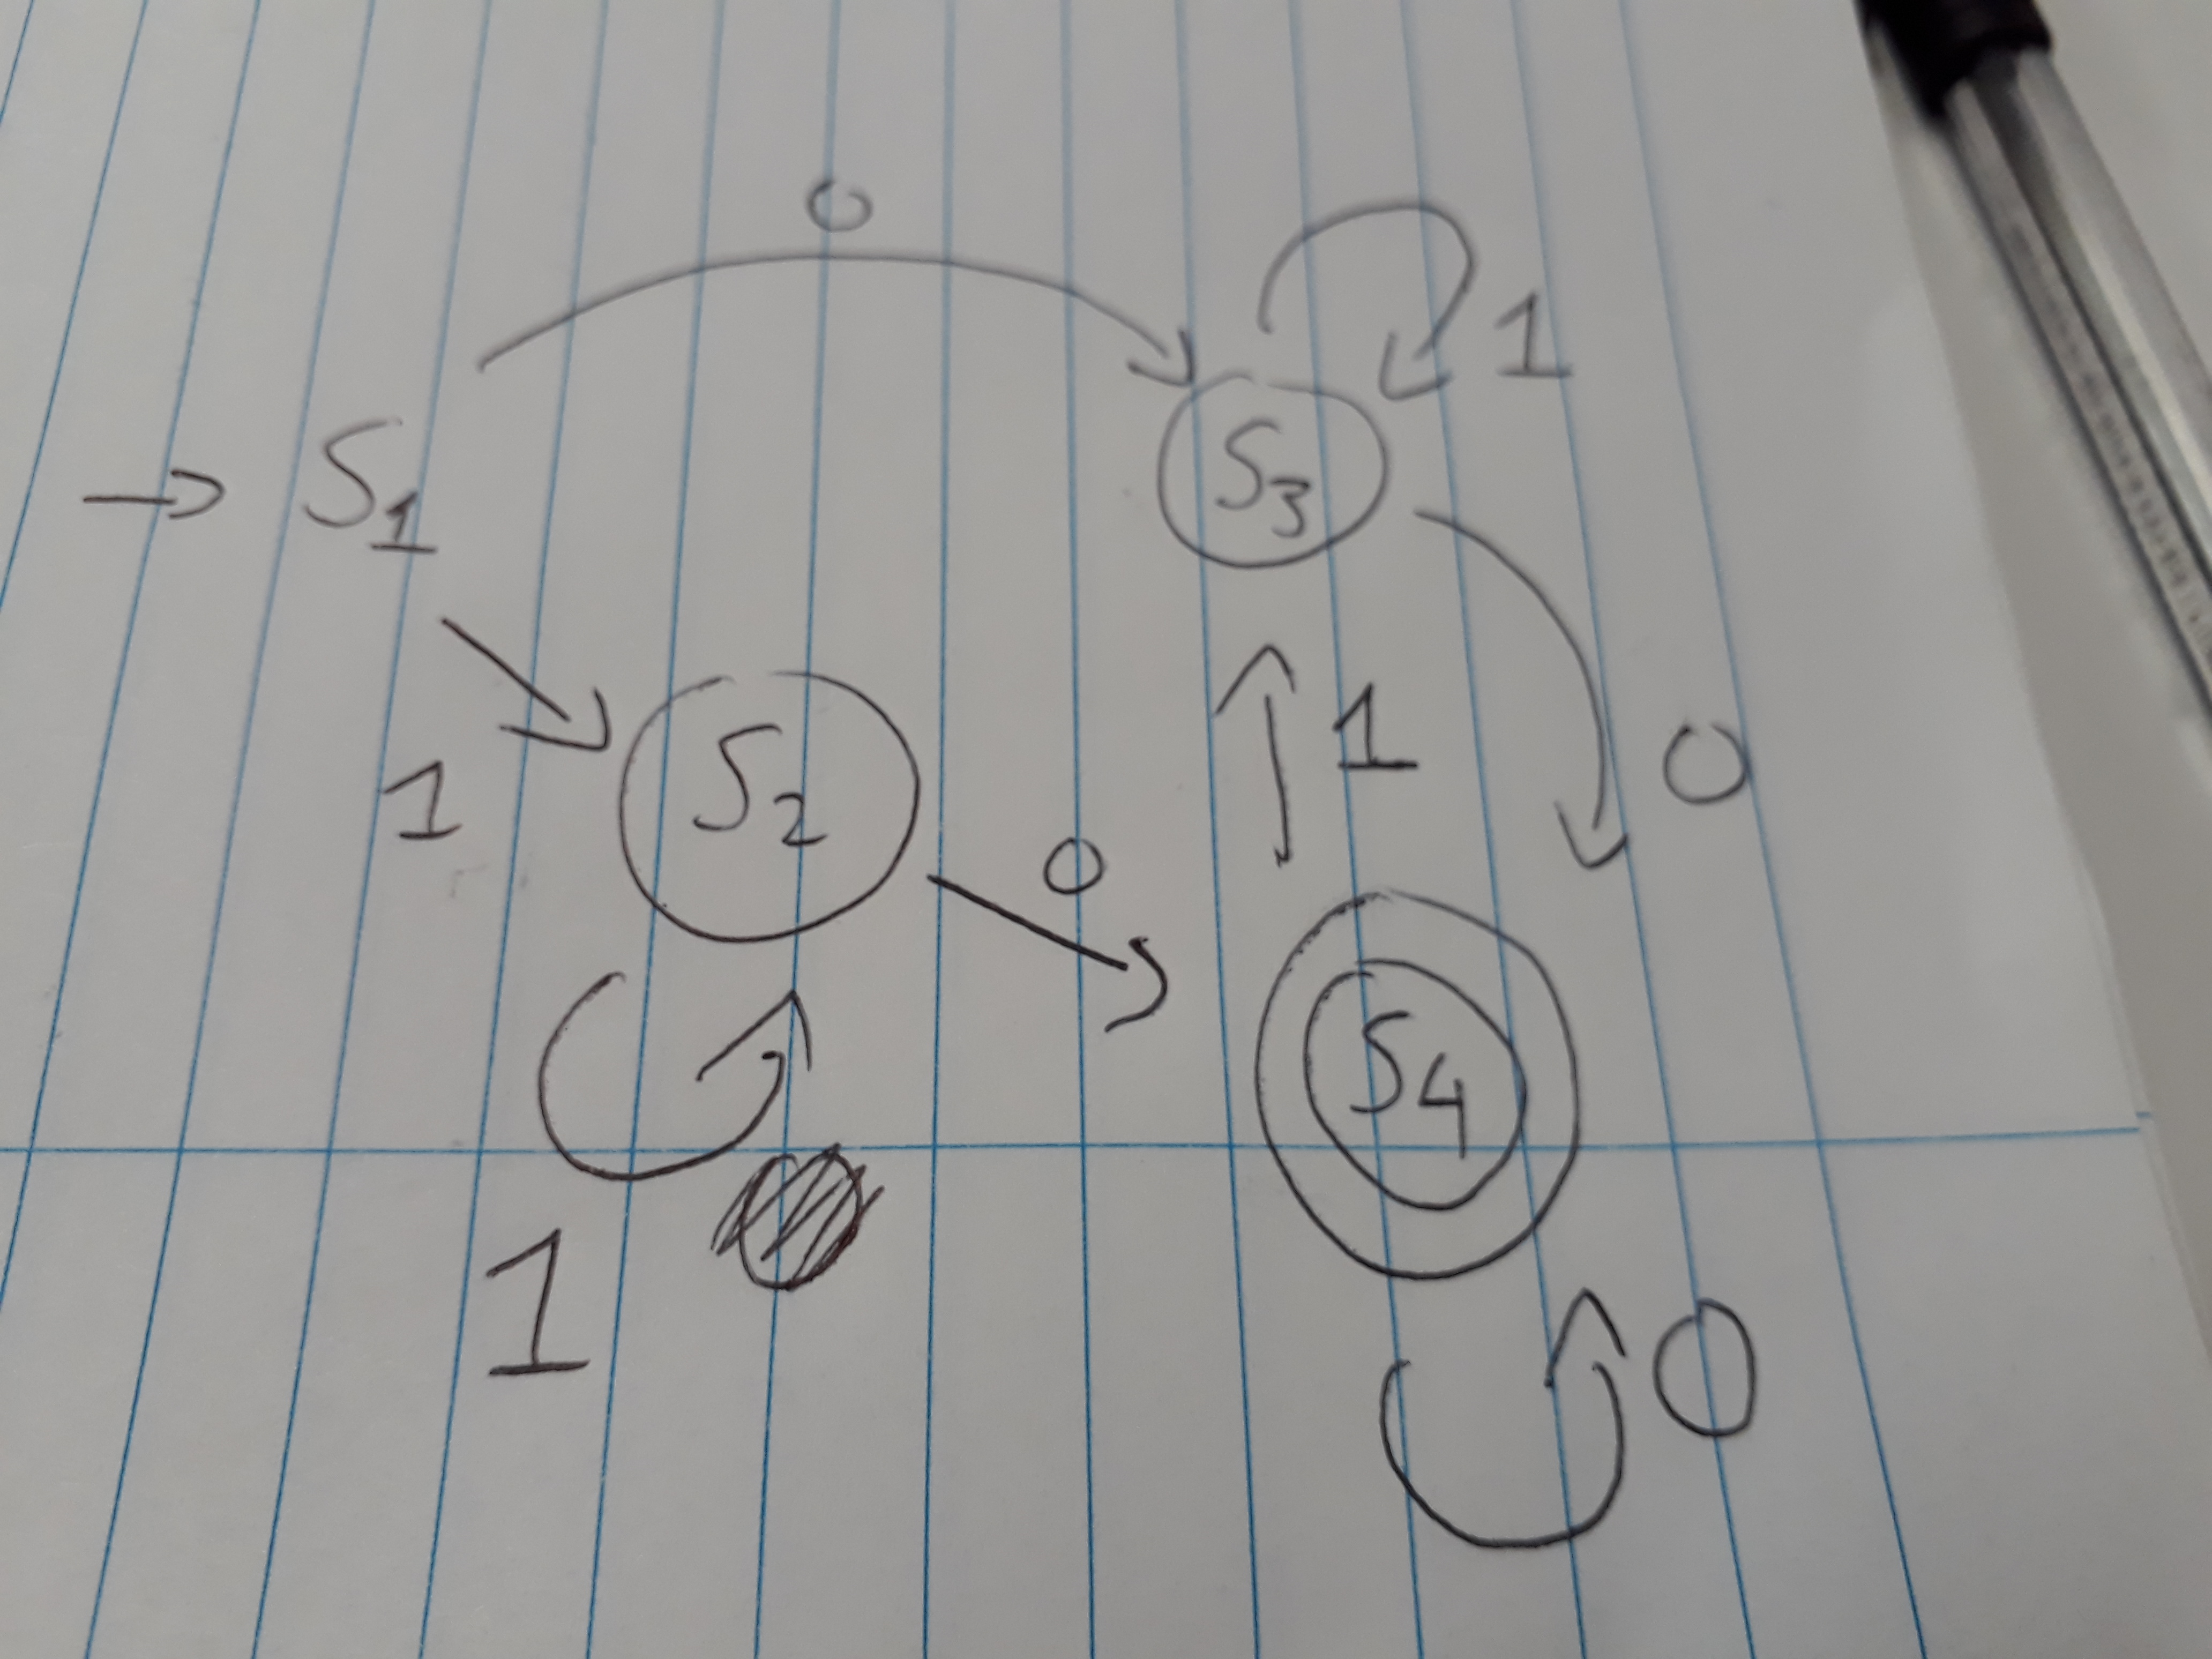 0
1
S1
S3
1
S2
1
0
0
S4
1
0